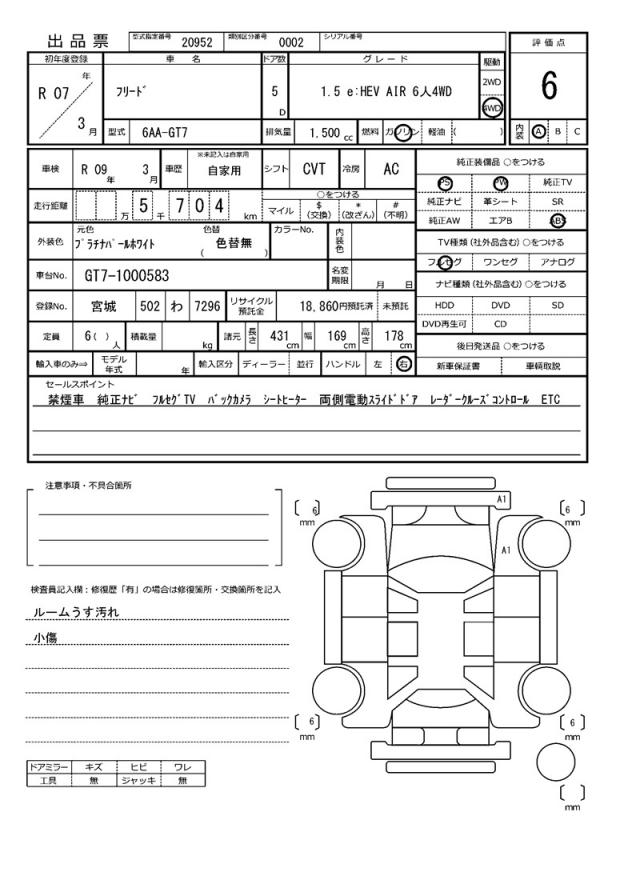 出品票 型式指定番号 20952 類別区分番号 0002 シリアル番号
評価点
6
初年度登録 車名 ドア数 グレード 駆動
R 07 年 3 月
フリード 5 D 1.5 e:HEV AIR 6人4WD 2WD 4WD
型式 6AA-GT7 排気量 1.500 cc 燃料 ガソリン 軽油 ( ) 内装 A B C
車検 R 09 年 3 月 車歴 ※未記入は自家用 自家用 シフト CVT 冷房 AC
走行距離 万 5 千 7 0 4 km ○をつける
マイル $(交換) *(改ざん) #(不明)
外装色 元色 プラチナパールホワイト 色替 ( 色替無 ) カラーNo. 内装色
車台No. GT7-1000583 名変期限 月 日
登録No. 宮城 502 わ 7296 リサイクル預託金 18,860円預託済 未預託
定員 6( )人 積載量 kg 諸元 長さ 431 cm 幅 169 cm 高さ 178 cm
輸入車のみ⇒ モデル年式 年 輸入区分 ディーラー 並行 ハンドル 左 右
純正装備品 ○をつける
PS PW 純正TV
純正ナビ 革シート SR
純正AW エアB ABS
TV種類(社外品含む) ○をつける
フルセグ ワンセグ アナログ
ナビ種類(社外品含む) ○をつける
HDD DVD SD
DVD再生可 CD
後日発送品 ○をつける
新車保証書 車輌取説
セールスポイント
禁煙車 純正ナビ フルセグTV バックカメラ シートヒーター 両側電動スライドドア レーダークルーズコントロール ETC
注意事項・不具合箇所
検査員記入欄：修復歴「有」の場合は修復箇所・交換箇所を記入
ルームうす汚れ
小傷
ドアミラー キズ ヒビ ワレ
工具 無 ジャッキ 無
6 mm
6 mm
A1
A1
6 mm
6 mm
mm